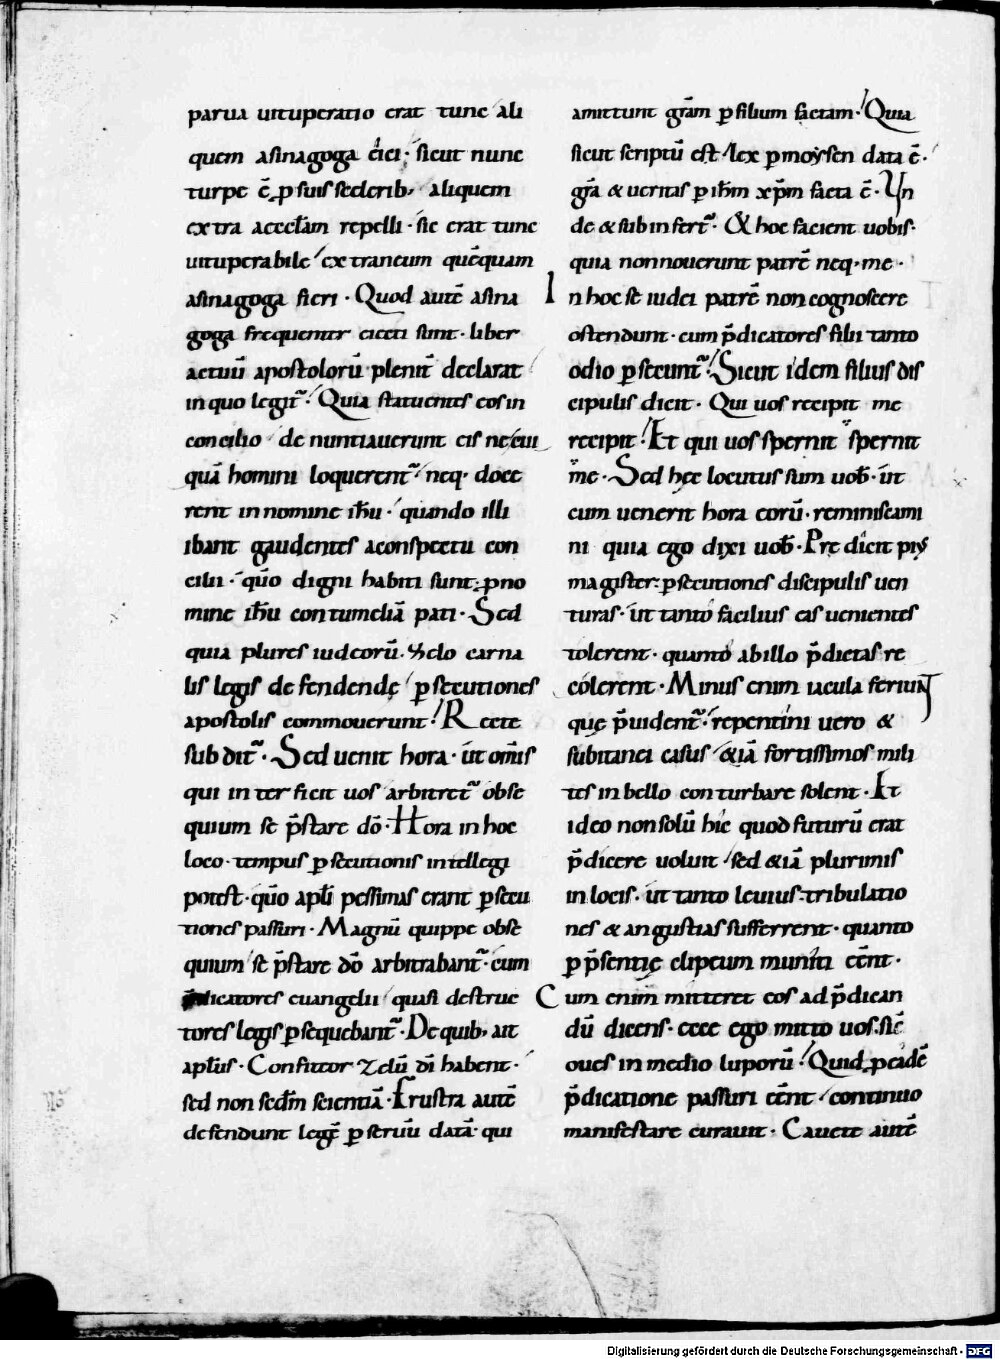 parua uituperatio erat tunc ali
quem asinagoga eici· sicut nunc
turpe ē· ꝑ suis sceleribꝫ aliquem
extra aecclam̄ repelli· sic erat tunc
uituperabile extraneum quēquam
asinagoga fieri· Quod autē asina
goga frequent̄ eiecti sunt· liber
actuū apostolorū plenit̄ declarat
in quo legit̄· Quia statuentes eos in
concilio denuntiauerunt eis ne cui
quā homini loquerent̄ neq· doce
rent in nomine ihū· quando illi
ibant gaudentes aconspectu con
cilii· qūo digni habiti sunt· ꝑ no
mine ihū contumeliā pati· Sed
quia plures iudeorū· zelo carna
lis legis defendendę ꝑsecutiones
apostolis commouerunt· Recte
subdit̄· Sed uenit hora· ūt om̄is
qui interficit uos arbitret̄ obse
quium se p̄stare dō· Hora in hoc
loco· tempus ꝑsecutionis intellegi
potest· qūo apl̄i pessimas erant ꝑsecu
tiones passuri· Magnū quippe obse
quium se p̄stare dō arbitrabant̄· cum
p̄dicatores euangelii quasi destruc
tores legis ꝑsequebant̄· De quibꝫ ait
apl̄us· Confiteor zelū dī habent·
sed non sedm̄ scientiā· Frustra autē
defendunt legē ꝑ seruū datā· qui
amittunt gr̄am ꝑ filium factam· Quia
sicut scriptū est· lex ꝑ moysen data ē·
gr̄a & ueritas ꝑ ihm̄ xp̄m facta ē· Un
de & subinfert̄· & hoc facient uobis·
quia non nouerunt patrē neq· me·
In hoc se iudei patrē non cognoscere
ostendunt· cum p̄dicatores filii tanto
odio ꝑsecunt̄· Sicut idem filius dis
cipulis dicit· Qui uos recipit me
recipit· Et qui uos spernit spernit
me· Sed hęc locutus sum uob̄· ūt
cum uenerit hora eorū· reminiscami
ni quia ego dixi uob̄· Predicit pius
magister ꝑsecutiones discipulis uen
turas· ūt tanto facilius eas uenientes
tolerent· quanto ab illo p̄dictas re
colerent· Minus enim iacula feriunt
quę p̄uident̄· repentini uero &
subitanei casus &iā fortissimos mili
tes in bello conturbare solent· Et
ideo non solū hic quod futurū erat
p̄dicere uoluit sed &iā plurimis
in locis· ūt tanto leuius tribulatio
nes & angustias sufferrent· quanto
ꝑ p̄sentię clipeum muniti eēnt·
Cum enim mitteret eos ad p̄dican
dū dicens· ecce ego mitto uos sic̄
oues in medio luporū· Quid ꝑ eidē
p̄dicatione passuri eēnt continuo
manifestare curauit· Cauete autē
Digitalisierung gefördert durch die Deutsche Forschungsgemeinschaft · DFG